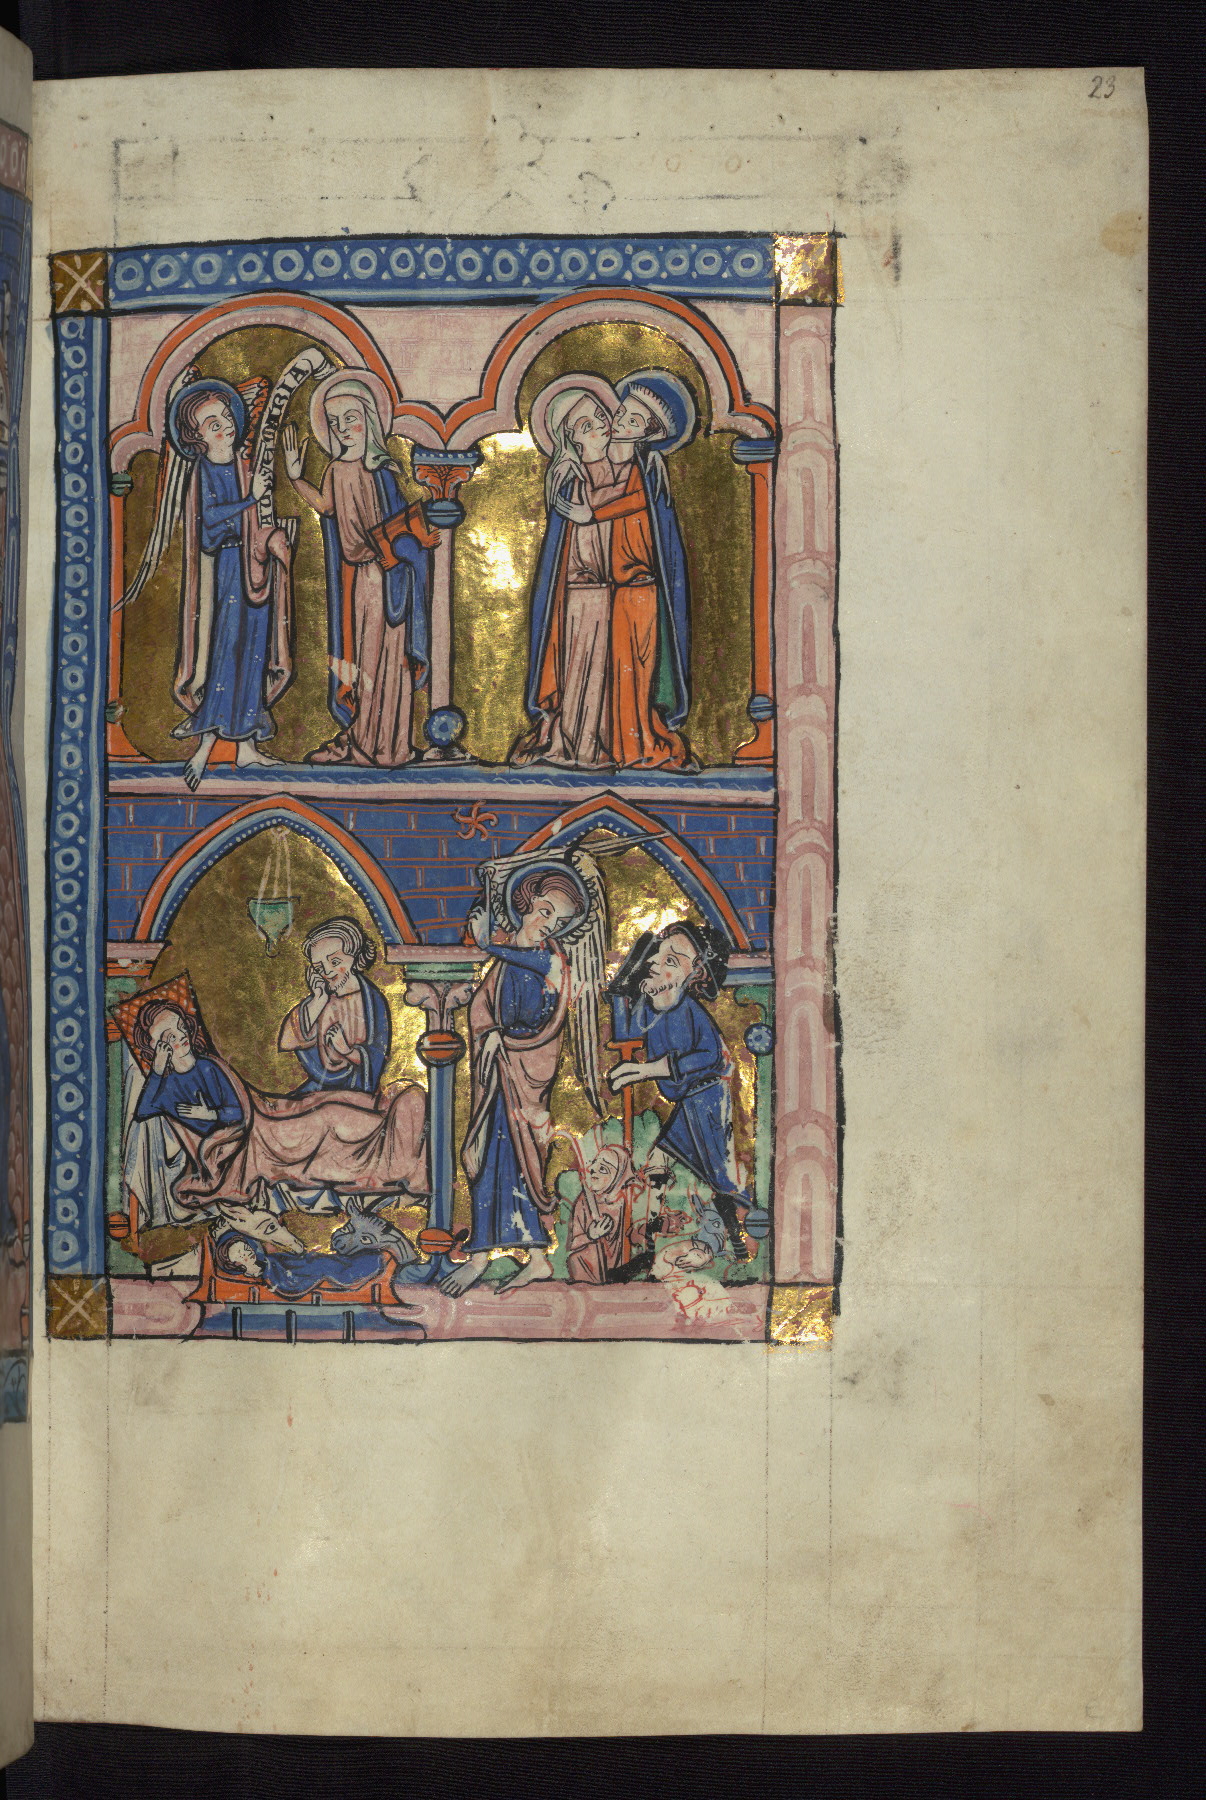 23
AVE MARIA